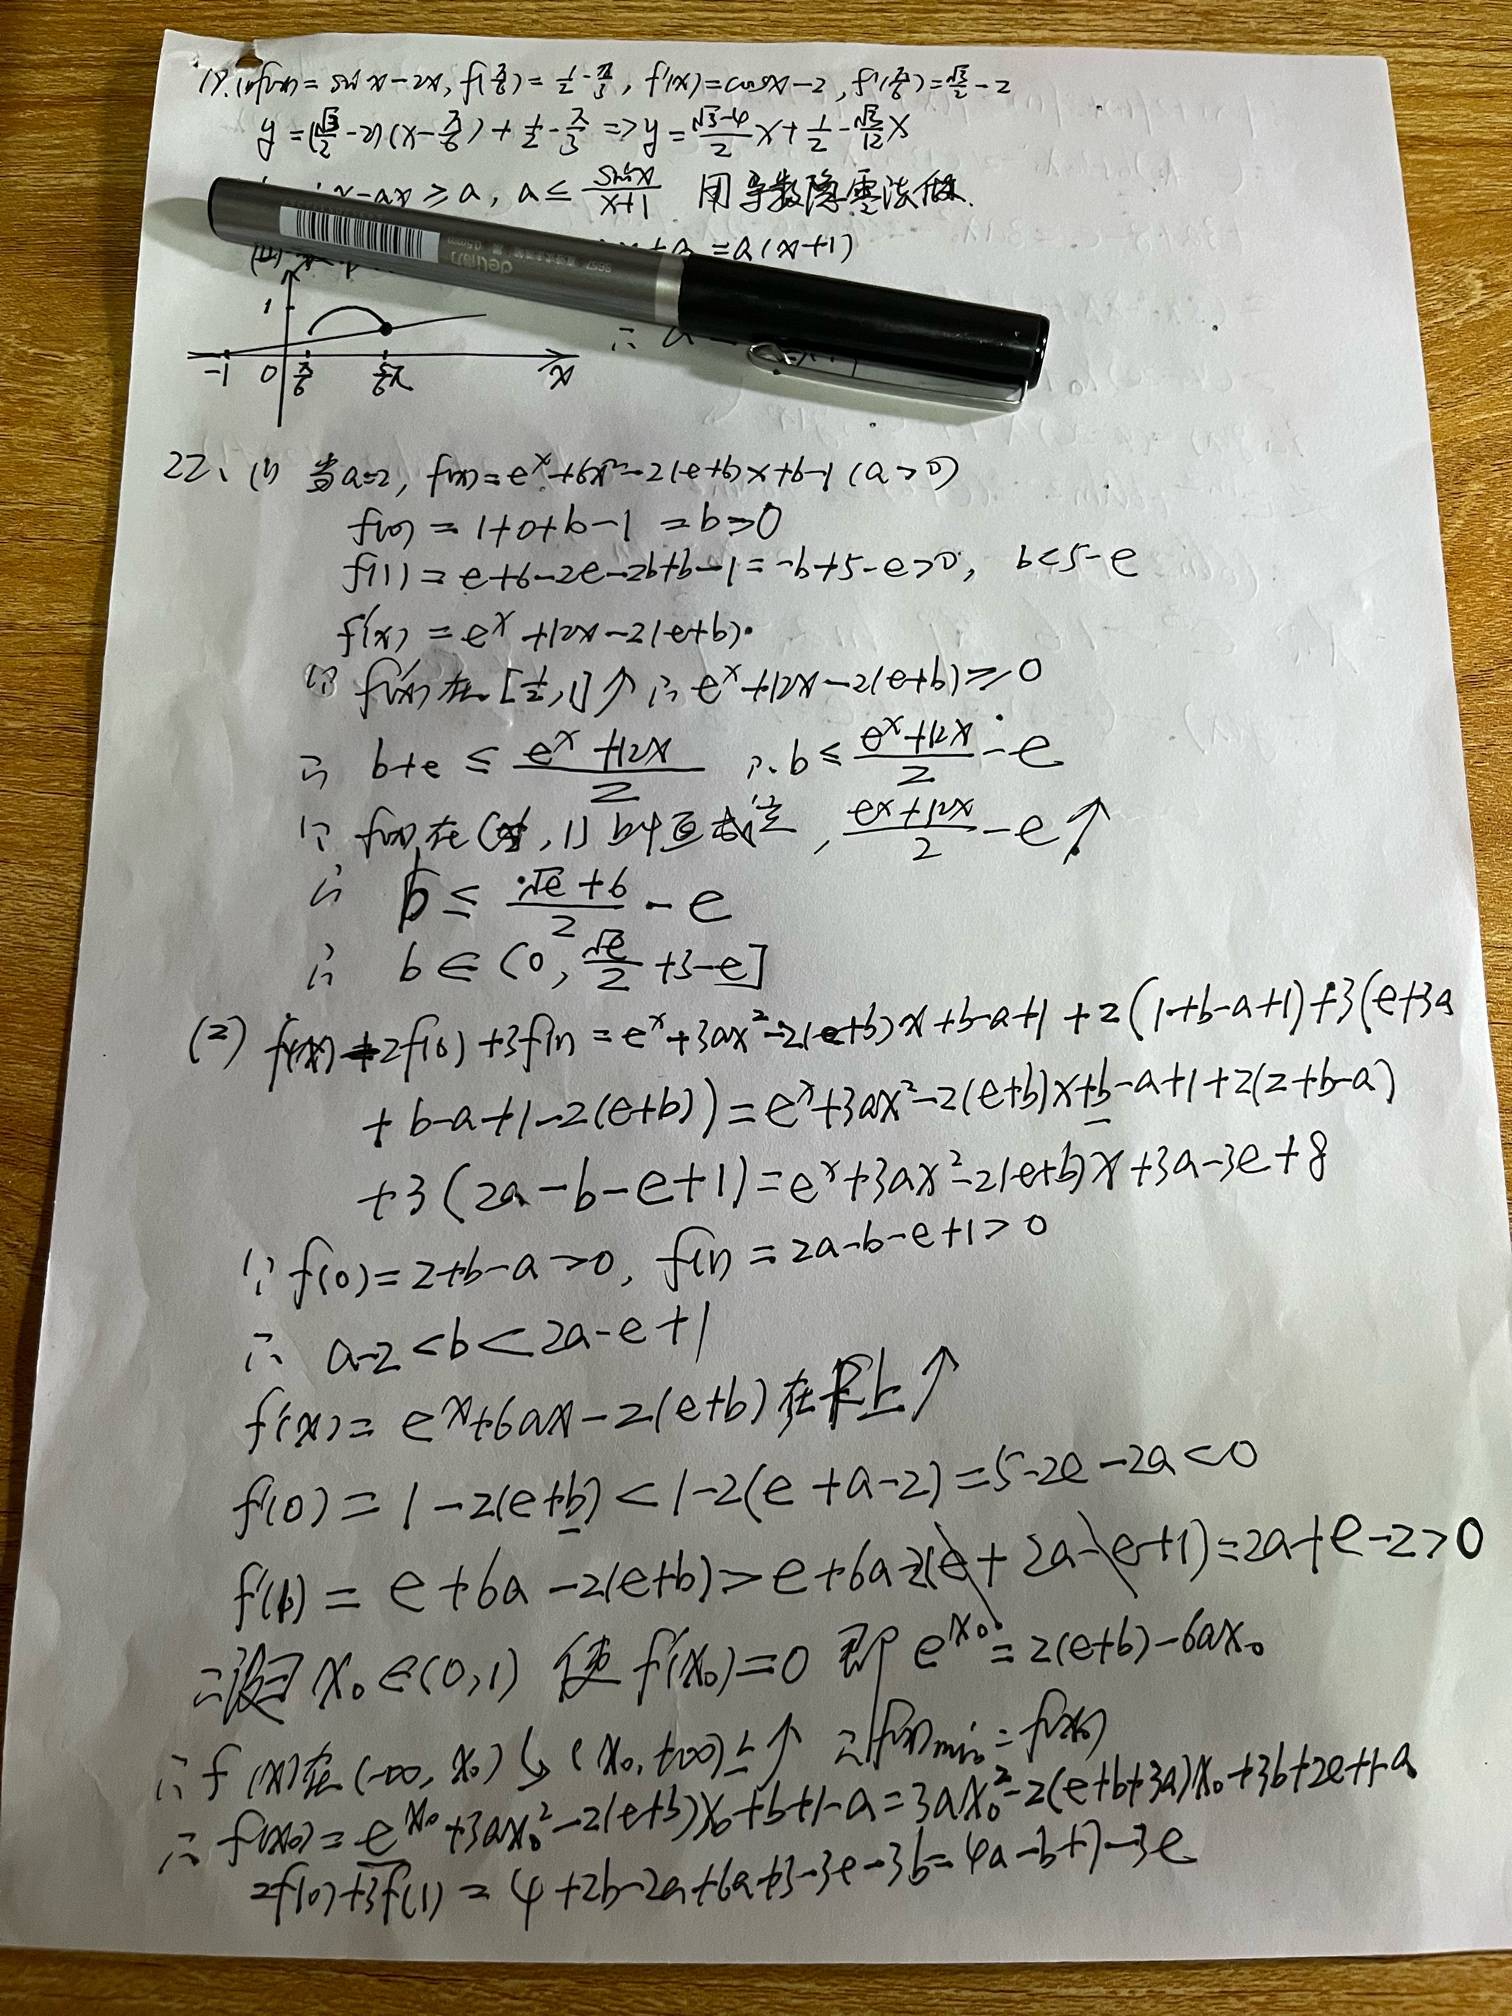 19. (1) f(x) = sin x - 2x, f(π/6) = 1/2 - π/3, f'(x) = cos x - 2, f'(π/6) = √3/2 - 2
y = (√3/2 - 2)(x - π/6) + 1/2 - π/3 => y = (√3-4)/2 x + 1/2 - √3/12 x
x - ax ≥ a, a ≤ sin x/(x+1) 用导数隐零法做.
= a(x+1)
1
∴ a
-1 0 π/6 5/6π x
22、(1) 当a=2, f(x) = e^x + 6x² - 2(e+b)x + b - 1 (a>0)
f(0) = 1+0+b-1 = b>0
f(1) = e+6-2e-2b+b-1 = -b+5-e>0, b<5-e
f'(x) = e^x + 12x - 2(e+b).
∵ f(x)在[1/2,1]↑ ∴ e^x + 12x - 2(e+b) ≥ 0
∴ b+e ≤ (e^x + 12x)/2 ∴ b ≤ (e^x + 12x)/2 - e
∵ f(x)在( ,1]上恒成立, (e^x + 12x)/2 - e↑
∴ b ≤ (√e + 6)/2 - e
∴ b ∈ (0, √e/2 + 3 - e]
(2) f(x) + 2f(0) + 3f(1) = e^x + 3ax² - 2(e+b)x + b - a + 1 + 2(1+b-a+1) + 3(e+3a
+ b-a+1-2(e+b)) = e^x + 3ax² - 2(e+b)x + b - a + 1 + 2(2+b-a)
+ 3(2a-b-e+1) = e^x + 3ax² - 2(e+b)x + 3a - 3e + 8
∵ f(0) = 2+b-a>0, f(1) = 2a-b-e+1>0
∴ a-2<b<2a-e+1
f'(x) = e^x + 6ax - 2(e+b) 在R上↑
f'(0) = 1-2(e+b) < 1-2(e+a-2) = 5-2e-2a<0
f'(1) = e+6a-2(e+b) > e+6a-2(e+2a-e+1) = 2a+e-2>0
∴设∃ x₀∈(0,1) 使 f'(x₀)=0 即 e^x₀ = 2(e+b)-6ax₀
∴ f(x)在(-∞, x₀)↘ (x₀, +∞)上↑ ∴ f(x)min = f(x₀)
∴ f(x₀) = e^x₀ + 3ax₀² - 2(e+b)x₀ + b+1-a = 3ax₀² - 2(e+b+3a)x₀ + 3b+2e+1-a
2f(0)+3f(1) = 4+2b-2a+6a+3-3e-3b = 4a-b+7-3e